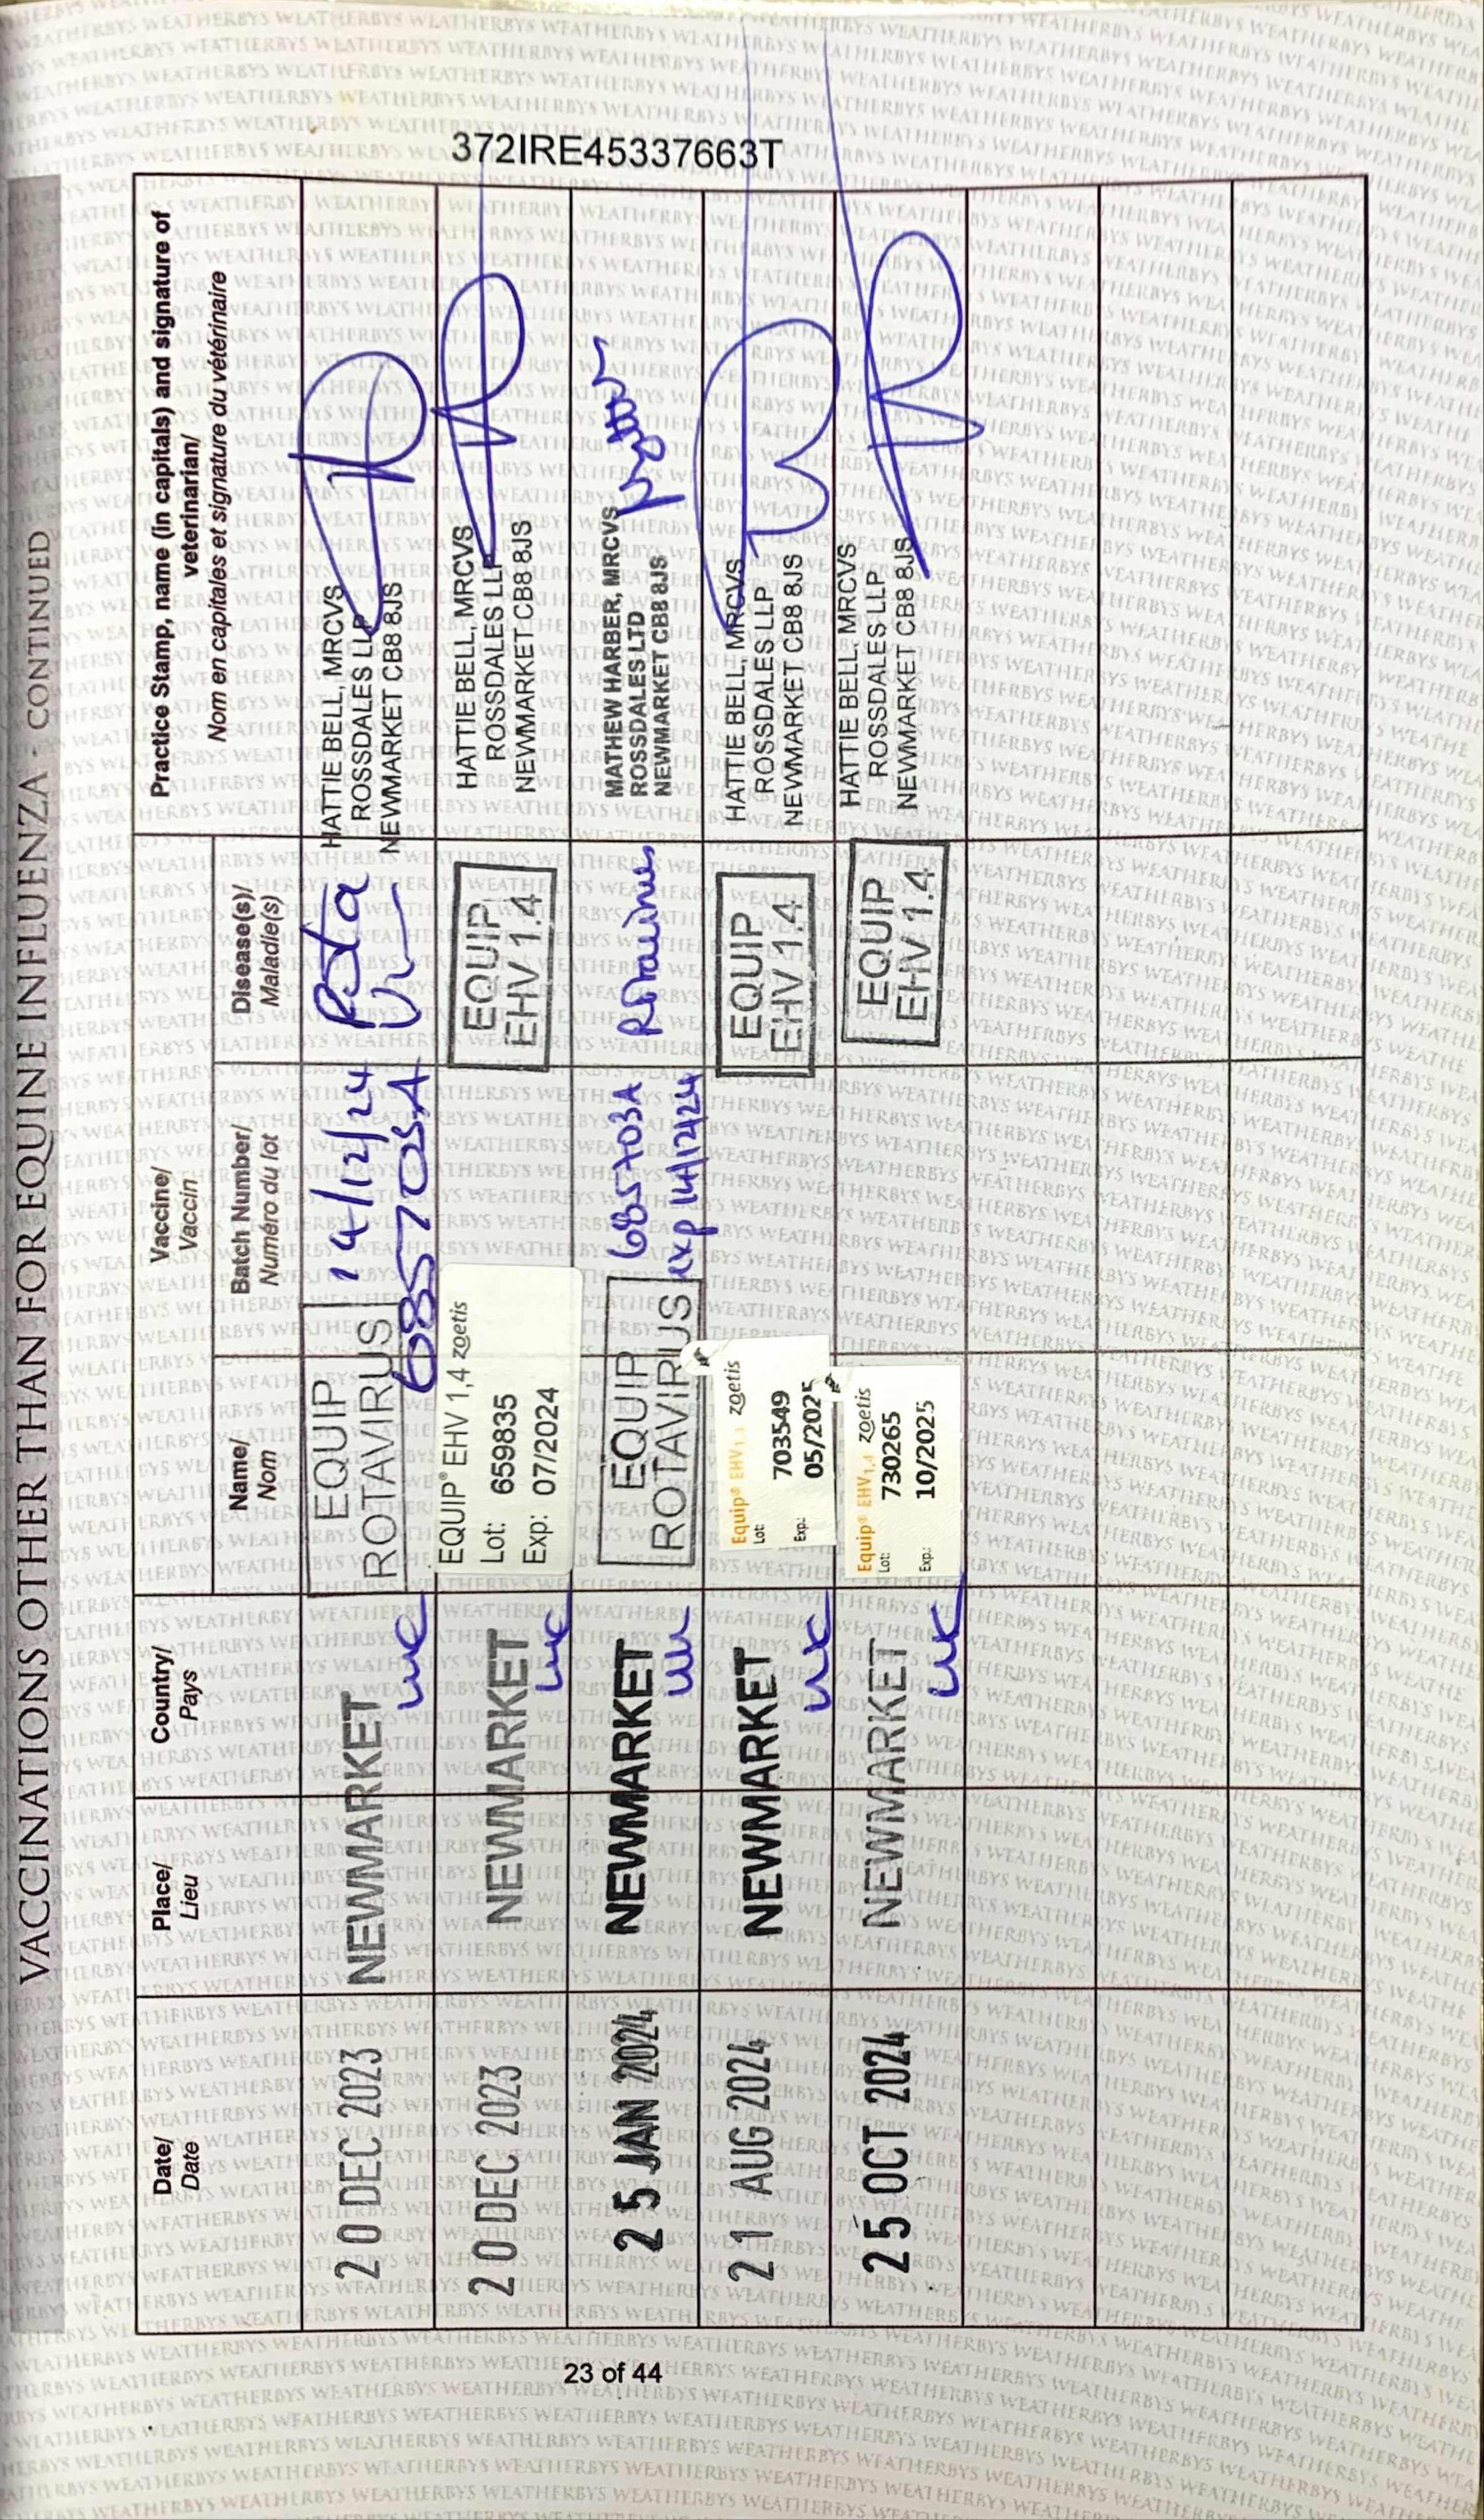 372IRE45337663T
VACCINATIONS OTHER THAN FOR EQUINE INFLUENZA - CONTINUED
Date/
Date
Place/
Lieu
Country/
Pays
Vaccine/
Vaccin
Name/
Nom
Batch Number/
Numéro du lot
Disease(s)/
Maladie(s)
Practice Stamp, name (in capitals) and signature of
veterinarian/
Nom en capitales et signature du vétérinaire
20 DEC 2023
NEWMARKET
UK
EQUIP
ROTAVIRUS
14/12/24
685703A
Rota
HATTIE BELL, MRCVS
ROSSDALES LLP
NEWMARKET CB8 8JS
20 DEC 2023
NEWMARKET
UK
EQUIP® EHV 1,4 zoetis
Lot: 659835
Exp: 07/2024
EQUIP
EHV 1.4
HATTIE BELL, MRCVS
ROSSDALES LLP
NEWMARKET CB8 8JS
25 JAN 2024
NEWMARKET
UK
EQUIP
ROTAVIRUS
685703A
exp 14/12/24
Rotavirus
MATHEW HARBER, MRCVS
ROSSDALES LTD
NEWMARKET CB8 8JS
21 AUG 2024
NEWMARKET
UK
Equip® EHV1,4 zoetis
Lot: 703549
Exp.: 05/2025
EQUIP
EHV 1.4
HATTIE BELL, MRCVS
ROSSDALES LLP
NEWMARKET CB8 8JS
25 OCT 2024
NEWMARKET
UK
Equip® EHV1,4 zoetis
Lot: 730265
Exp.: 10/2025
EQUIP
EHV 1.4
HATTIE BELL, MRCVS
ROSSDALES LLP
NEWMARKET CB8 8JS
23 of 44